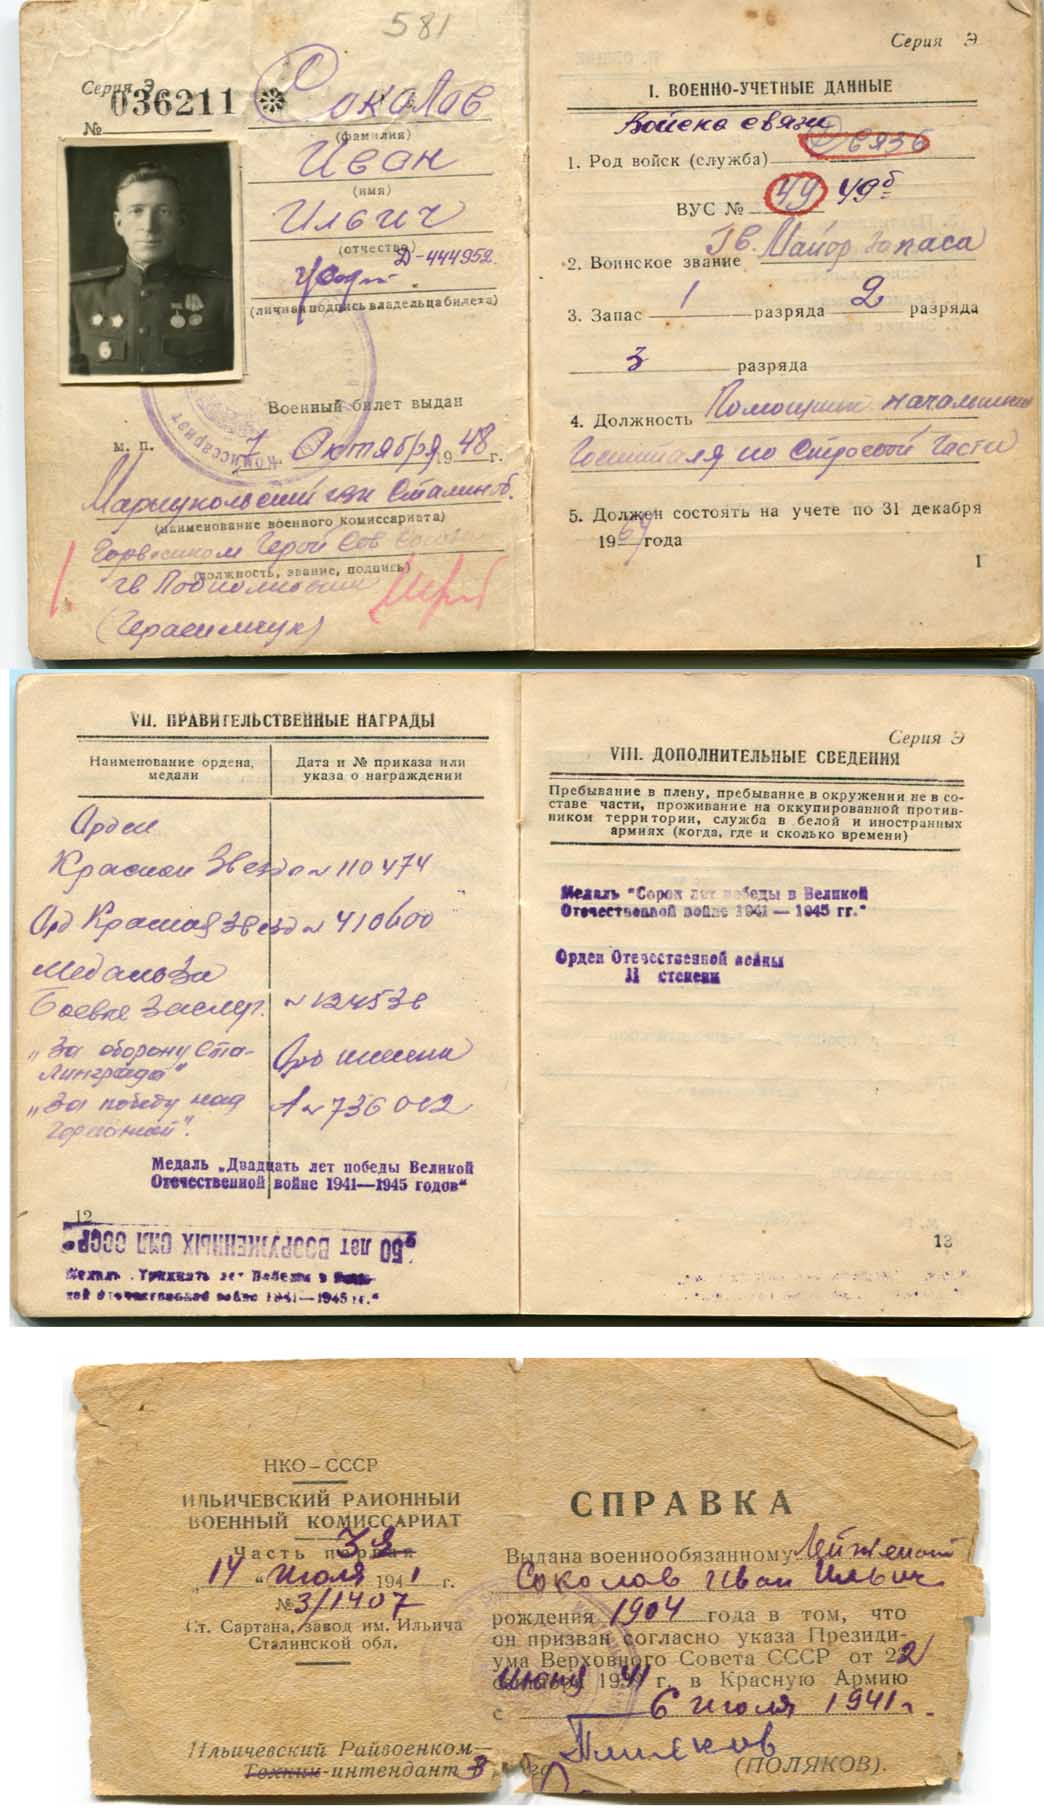 581
Серия Э
№ 036211
Соколов
(фамилия)
Иван
(имя)
Ильич
(отчество)
Д-444952
(личная подпись владельца билета)
Военный билет выдан
м. п. 7 Октября 1948 г.
Мариупольский гвк Сталин об.
(наименование военного комиссариата)
Горвоенком Герой Сов Союза
(должность, звание, подпись)
гв Подполковник
(Герасимчук)
Серия Э
I. ВОЕННО-УЧЕТНЫЕ ДАННЫЕ
Войска связи
1. Род войск (служба) Связь
ВУС № 49 49б
2. Воинское звание Гв. Майор запаса
3. Запас 1 разряда 2 разряда
3 разряда
4. Должность Помощник начальника
Госпиталя по Строевой части
5. Должен состоять на учете по 31 декабря
1969 года
1
VII. ПРАВИТЕЛЬСТВЕННЫЕ НАГРАДЫ
Наименование ордена, медали
Дата и № приказа или указа о награждении
Орден
Красной Звезда № 110474
Орд Красная Звезд № 410600
Медаль За
Боевые Заслуг. № 124536
"За оборону Ста-
линграда"
"За победу над А № 736012
Германией".
Медаль „Двадцать лет победы Великой
Отечественной войне 1941—1945 годов"
12
"50 лет ВООРУЖЕННЫХ СИЛ СССР"
Медаль „Тридцать лет Победы в Вели-
кой отечественной войне 1941—1945 гг."
Серия Э
VIII. ДОПОЛНИТЕЛЬНЫЕ СВЕДЕНИЯ
Пребывание в плену, пребывание в окружении не в со-
ставе части, проживание на оккупированной против-
ником территории, служба в белой и иностранных
армиях (когда, где и сколько времени)
Медаль "Сорок лет победы в Великой
Отечественной войне 1941 — 1945 гг."
Орден Отечественной войны
II степени
13
НКО-СССР
ИЛЬИЧЕВСКИЙ РАЙОННЫЙ
ВОЕННЫЙ КОМИССАРИАТ
Часть первая 3я
„14" Июля 1941 г.
№ 3/1407
Ст. Сартана, завод им. Ильича
Сталинской обл.
Ильичевский Райвоенком—
Техник-интендант 3
СПРАВКА
Выдана военнообязанному Лейтенант
Соколов Иван Ильич
рождения 1904 года в том, что
он призван согласно указа Президи-
ума Верховного Совета СССР от 22
июня 1941 г. в Красную Армию
с 6 июля 1941 г.
(ПОЛЯКОВ).